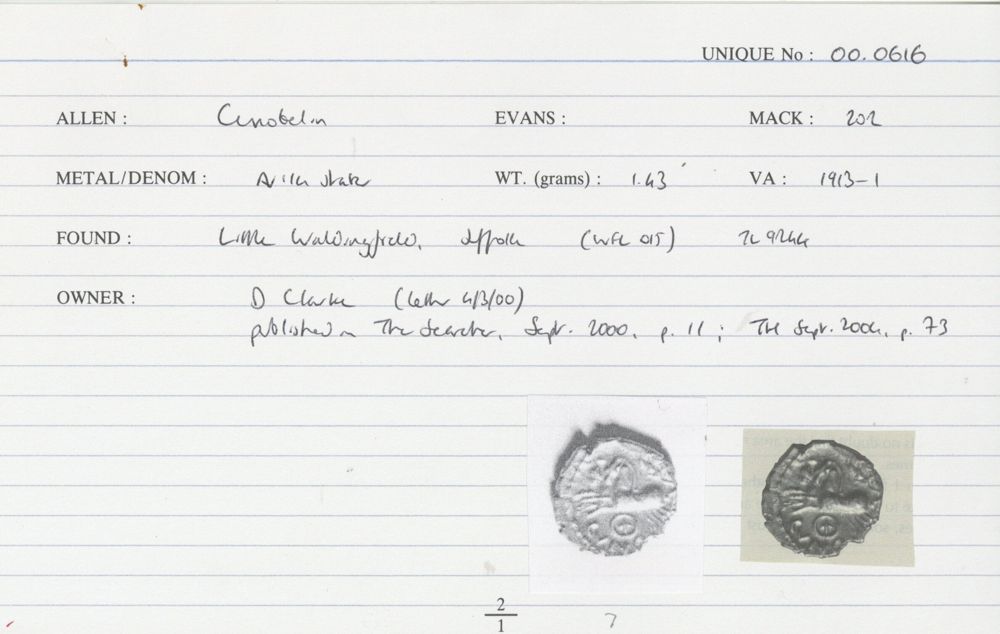 UNIQUE No : 00.0616
ALLEN : Cunobelin EVANS : MACK : 202
METAL/DENOM : WT. (grams) : 1.43 VA : 1913-1
FOUND : Little Waldingfield, Suffolk (WFL 015) TL 9244
OWNER : D Clarke (letter 4/3/00)
published in The Searcher, Sept. 2000, p. 11 ; TH Sept. 2004, p. 73
2
1
7